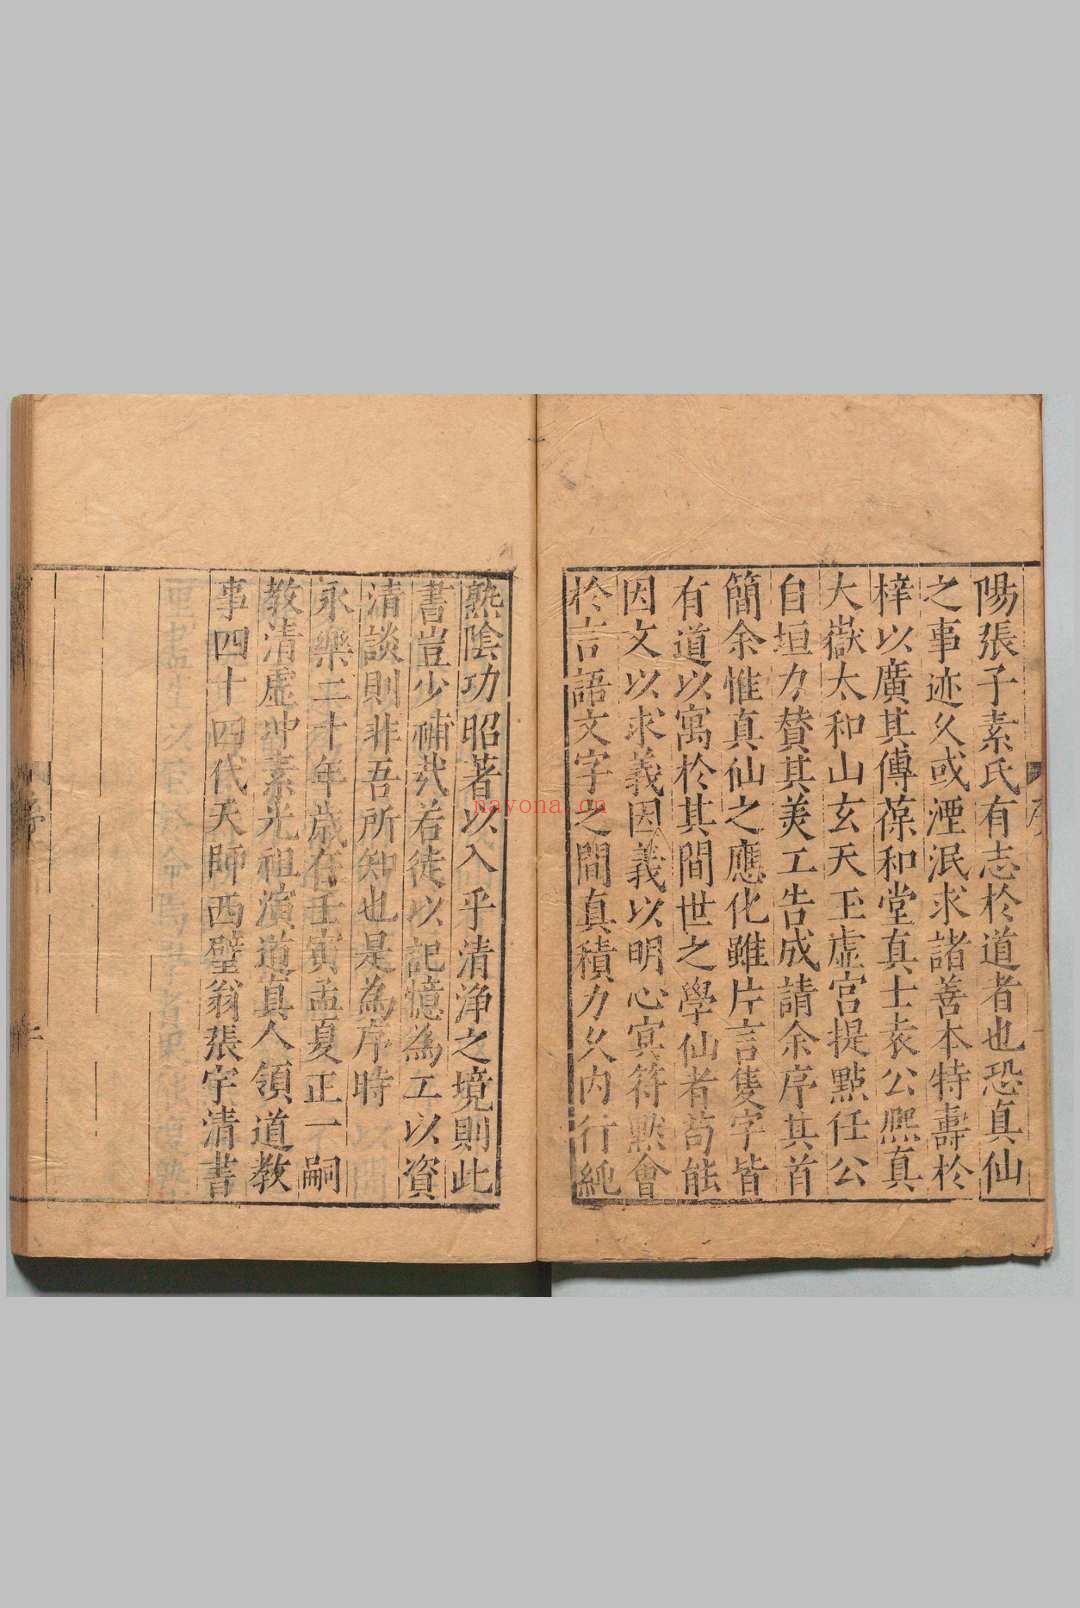 陽張子素氏有志於道者也恐真仙
之事迹久或湮泯求諸善本特壽於
梓以廣其傳葆和堂真士袁公熈真
大嶽太和山玄天玉虛宮提點任公
自垣力賛其美工告成請余序其首
簡余惟真仙之應化雖片言隻字皆
有道以寓於其間世之學仙者苟能
因文以求義因義以明心㝠符黙會
於言語文字之間真積力久内行純
熟陰功昭著以入乎清浄之境則此
書豈少補㢤若徒以記憶為工以資
清談則非吾所知也是為序時
永樂二十年歳在壬寅孟夏正一嗣
教清虛冲素光祖演道真人領道教
事四十四代天師西璧翁張宇清書
序
nayona.cn